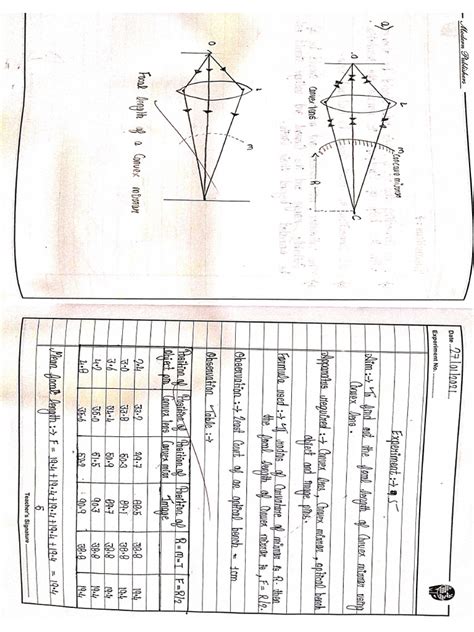 Modern Publishers
a)
m
Concave mirror
L
O
C
R
Convex lens
L
m
O
Focal length of a Convex mirror
Date 27/01/2021
Experiment No.
Experiment :→ 5
Aim :→ To find out the focal length of Convex mirror using
Convex lens.
Apparatus required :→ Convex lens, Convex mirror, optical bench
object and image pins.
Formula used :→ If radius of Curvature of mirror is R. then
the focal length of Convex mirror is, F = R/2.
Observation :→ Least Count of an optical bench = 1cm
Observation Table :→
Position of Position of Position of Position of R = m-I F = R/2
object pin Convex lens Convex mirror Image
2.4 33.2 88.5 38.8 19.4
3.0 33.8 50.3 89.1 38.8 19.4
3.6 34.4 50.9 89.7 38.8 19.4
4.2 35.0 51.5 38.8 19.4
4.8 35.6 90.9 38.8 19.4
Mean focal length :→ F = 19.4 + 19.4 + 19.4 + 19.4 + 19.4 = 19.4
5
Teacher's Signature